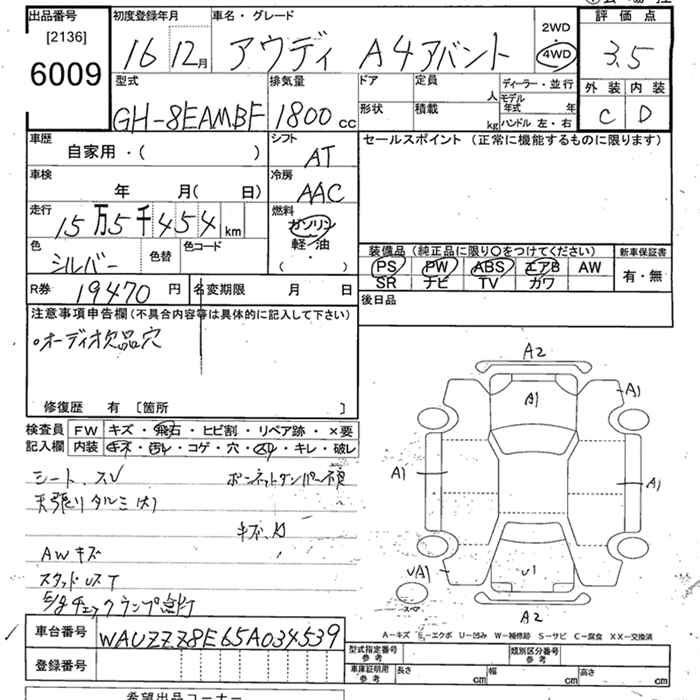 出品番号
[2136]
6009
初度登録年月
16 12月
車名・グレード
アウディ A4アバント
2WD
4WD
評価点
3.5
外装 内装
C D
型式
GH-8EAMBF
排気量
1800 cc
ドア
形状
定員
人
積載
kg
ディーラー・並行
モデル年式 年
ハンドル 左・右
車歴
自家用・( )
シフト
AT
セールスポイント (正常に機能するものに限ります)
車検
年 月( 日)
冷房
AAC
走行
15万5千454km
燃料
ガソリン
軽・油
・
( )
色
シルバー
色替
色コード
装備品 (純正品に限り〇をつけてください)
PS PW ABS エアB AW
SR ナビ TV カワ
新車保証書
有・無
R券 19470 円
名変期限 月 日
後日品
注意事項申告欄(不具合内容等は具体的に記入して下さい)
。オーディオ欠品穴
修復歴 有 〔箇所 〕
検査員
記入欄
FW キズ・飛石・ヒビ割・リペア跡・×要
内装 キズ・汚レ・コゲ・穴・スレ・キレ・破レ
シート、スレ
天張りタルミ大
AWキズ
スタッドレスT
チェックランプ点灯
A2
A1
A1
A1
A1
A2
A－キズ E－エクボ U－凹み W－補修跡 S－サビ C－腐食 XX－交換済
車台番号 WAUZZZ8E65A034539
登録番号
型式指定番号
参考
類別区分番号
参考
車庫証明用
参考
長さ cm
幅 cm
高さ cm
希望出品コーナー